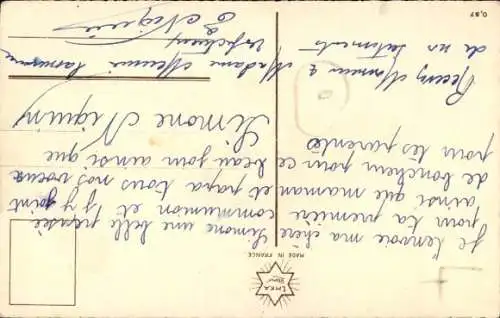 Je t'envoie ma chère Simone une belle pensée
pour ta première communion et j'y joint
ainsi que maman et papa tous nos voeux
de bonheur pour ce beau jour ainsi que
pour tes parents
Simone Niquin
Recevez Monsieur & Madame
de nos sentiments
MADE IN FRANCE
0,87